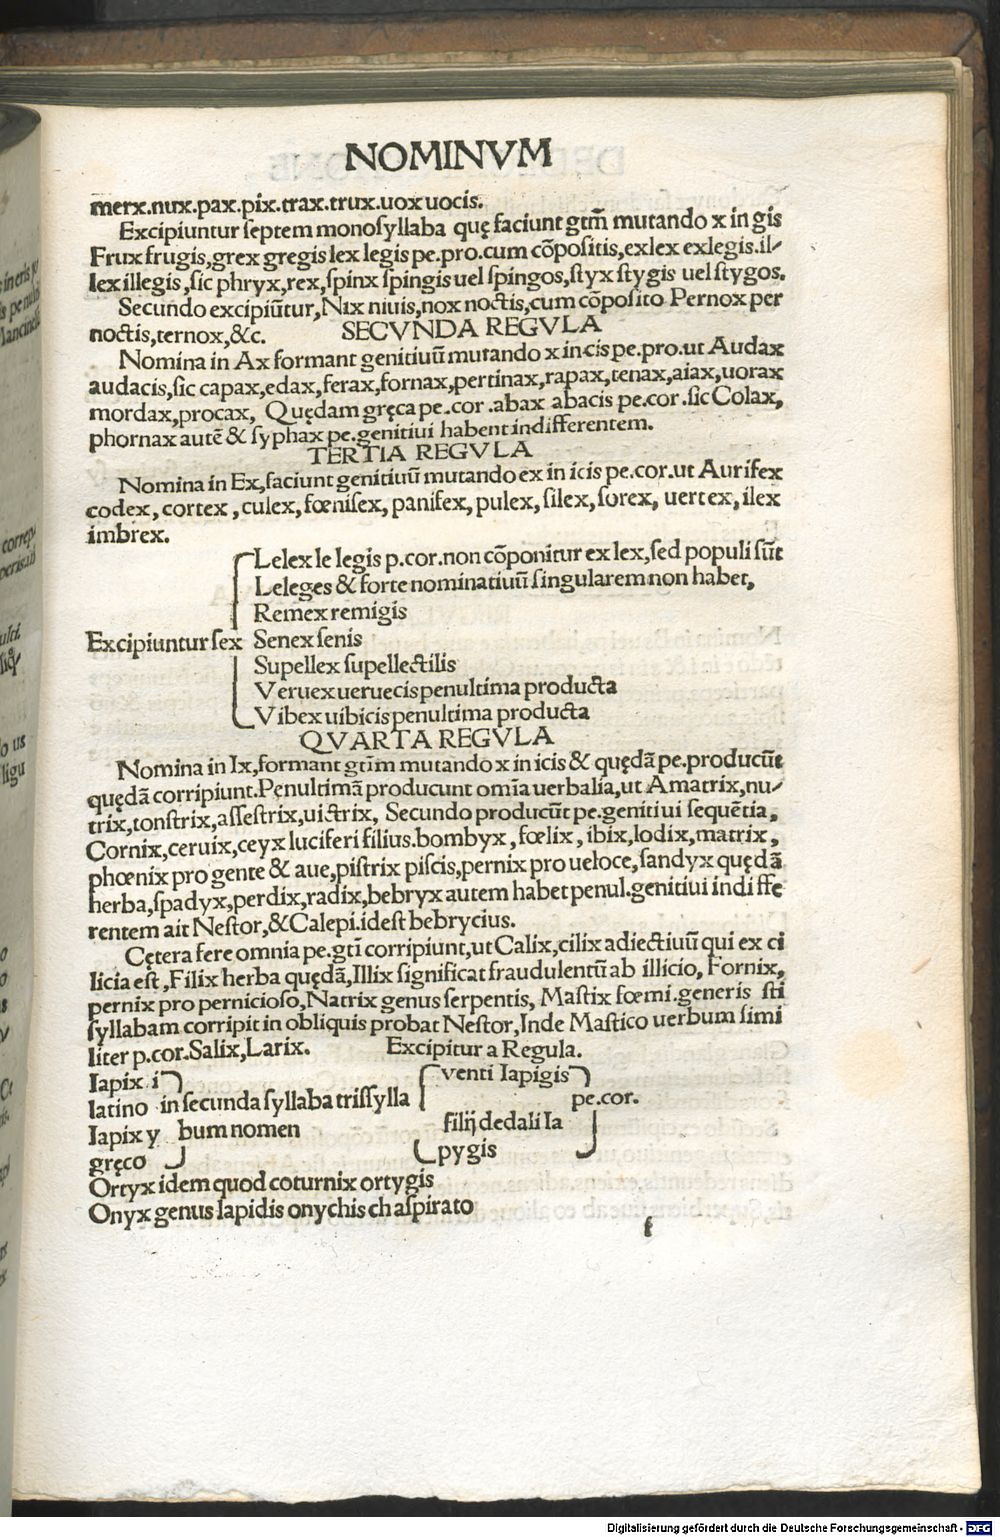 NOMINVM
merx.nux.pax.pix.trax.trux.uox uocis.
Excipiuntur ſeptem monoſyllaba quę faciunt gtm̄ mutando x in gis
Frux frugis,grex gregis lex legis pe.pro.cum cōpoſitis,exlex exlegis.il-
lex illegis,ſic phryx,rex,ſpinx ſpingis uel ſpingos,ſtyx ſtygis uel ſtygos.
Secundo excipiūtur,Nix niuis,nox noctis,cum cōpoſito Pernox per
noctis,ternox,&c. SECVNDA REGVLA
Nomina in Ax formant genitiuū mutando x in cis pe.pro.ut Audax
audacis,ſic capax,edax,ferax,fornax,pertinax,rapax,tenax,aiax,uorax
mordax,procax, Quędam gręca pe.cor.abax abacis pe.cor.ſic Colax,
phornax autē & ſyphax pe.genitiui habent indifferentem.
TERTIA REGVLA
Nomina in Ex,faciunt genitiuū mutando ex in icis pe.cor.ut Aurifex
codex, cortex, culex, fœniſex, panifex, pulex, ſilex, ſorex, uertex, ilex
imbrex.
Lelex le legis p.cor.non cōponitur ex lex,ſed populi ſūt
Leleges & forte nominatiuū ſingularem non habet,
Remex remigis
Excipiuntur ſex Senex ſenis
Supellex ſupellectilis
Veruex ueruecis penultima producta
Vibex uibicis penultima producta
QVARTA REGVLA
Nomina in Ix,formant gtīm mutando x in icis & quędā pe.producūt
quędā corripiunt.Penultimā producunt omīa uerbalia,ut Amatrix,nu-
trix,tonſtrix,aſſeſtrix,uictrix, Secundo producūt pe.genitiui ſequētia,
Cornix,ceruix,ceyx luciferi filius.bombyx, fœlix, ibix,lodix,matrix,
phœnix pro gente & aue,piſtrix piſcis,pernix pro ueloce,ſandyx quędā
herba,ſpadyx,perdix,radix,bebryx autem habet penul.genitiui indiffe
rentem ait Neſtor,&Calepi.ideſt bebrycius.
Cętera fere omnia pe.gtī corripiunt,ut Calix,cilix adiectiuū qui ex ci
licia eſt,Filix herba quędā,Illix ſignificat fraudulentū ab illicio, Fornix,
pernix pro pernicioſo,Natrix genus ſerpentis, Maſtix fœmi.generis ſti
ſyllabam corripit in obliquis probat Neſtor,Inde Maſtico uerbum ſimi
liter p.cor.Salix,Larix. Excipitur a Regula.
Iapix i venti Iapigis
latino in ſecunda ſyllaba triſſylla pe.cor.
Iapix y bum nomen filij dedali Ia
gręco pygis
Ortyx idem quod coturnix ortygis
Onyx genus lapidis onychis ch aſpirato
f
Digitalisierung gefördert durch die Deutsche Forschungsgemeinschaft - DFG